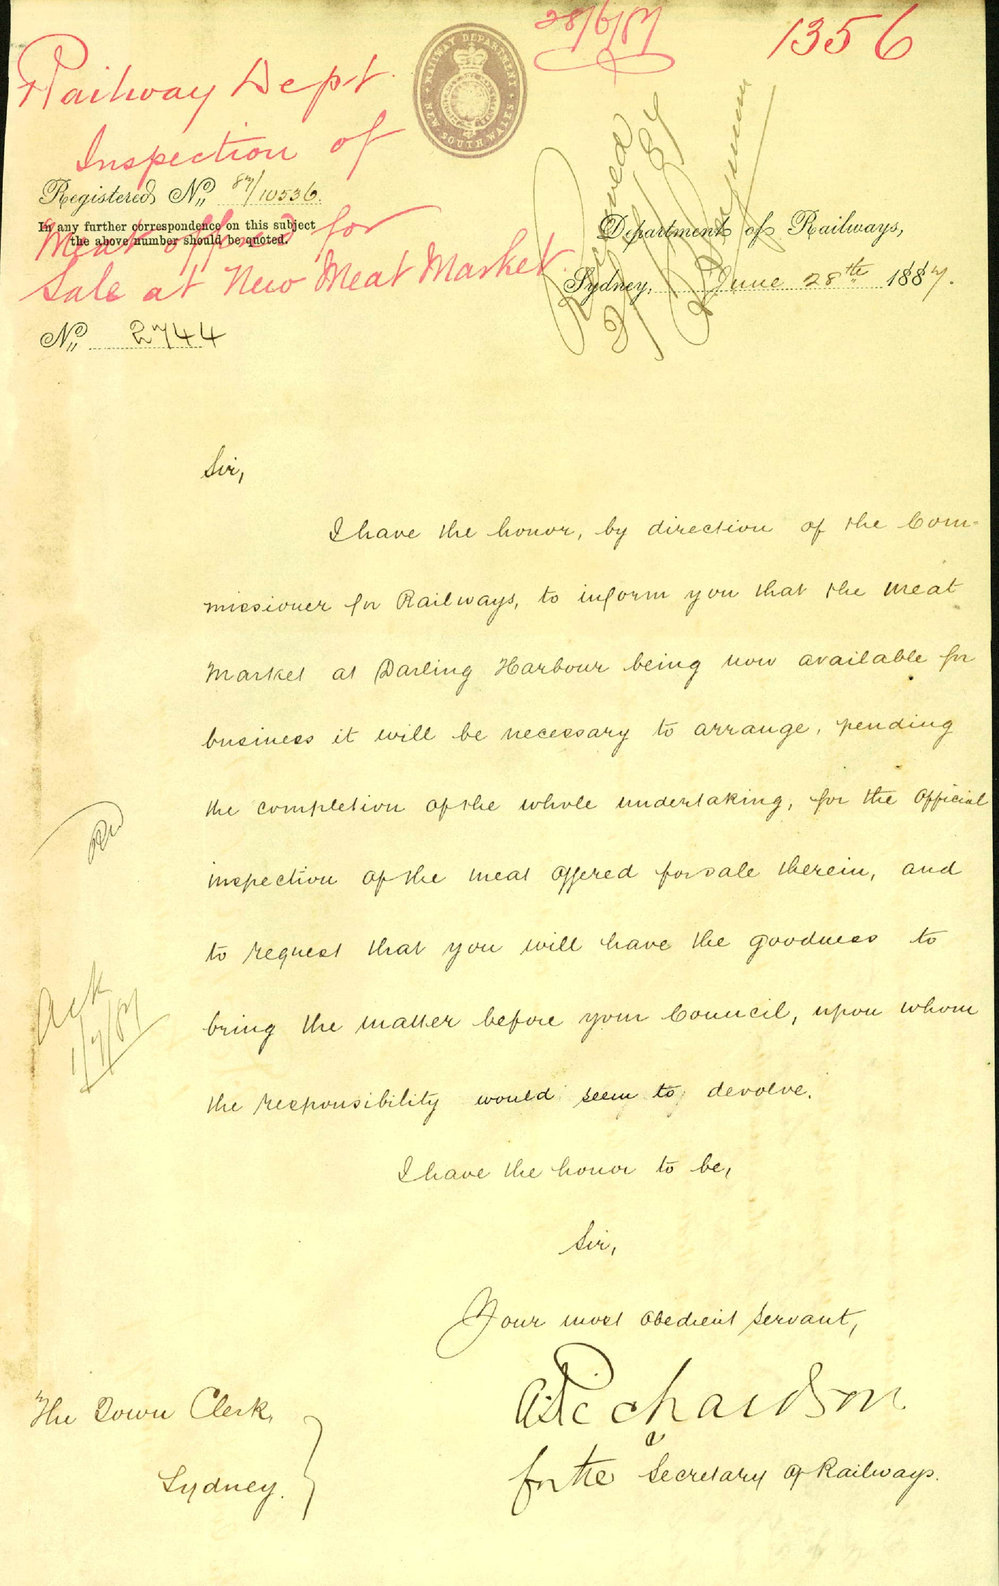 28/6/87
1356
Railway Dept
Inspection of
Meat offered for
Sale at New Meat Market
RAILWAY DEPARTMENT
NEW SOUTH WALES
Registered No. 87/10536.
In any further correspondence on this subject
the above number should be quoted.
No. 2744
Received
Department of Railways,
Sydney, June 28th 1887.
Sir,
I have the honor, by direction of the Com-
missioner for Railways, to inform you that the Meat
Market at Darling Harbour being now available for
business it will be necessary to arrange, pending
the completion of the whole undertaking, for the official
inspection of the meat offered for sale therein, and
to request that you will have the goodness to
bring the matter before your Council, upon whom
the responsibility would seem to devolve.
I have the honor to be,
Sir,
Your most obedient servant,
Richardson
for the Secretary of Railways.
The Town Clerk,
Sydney.
Ack
1/7/87